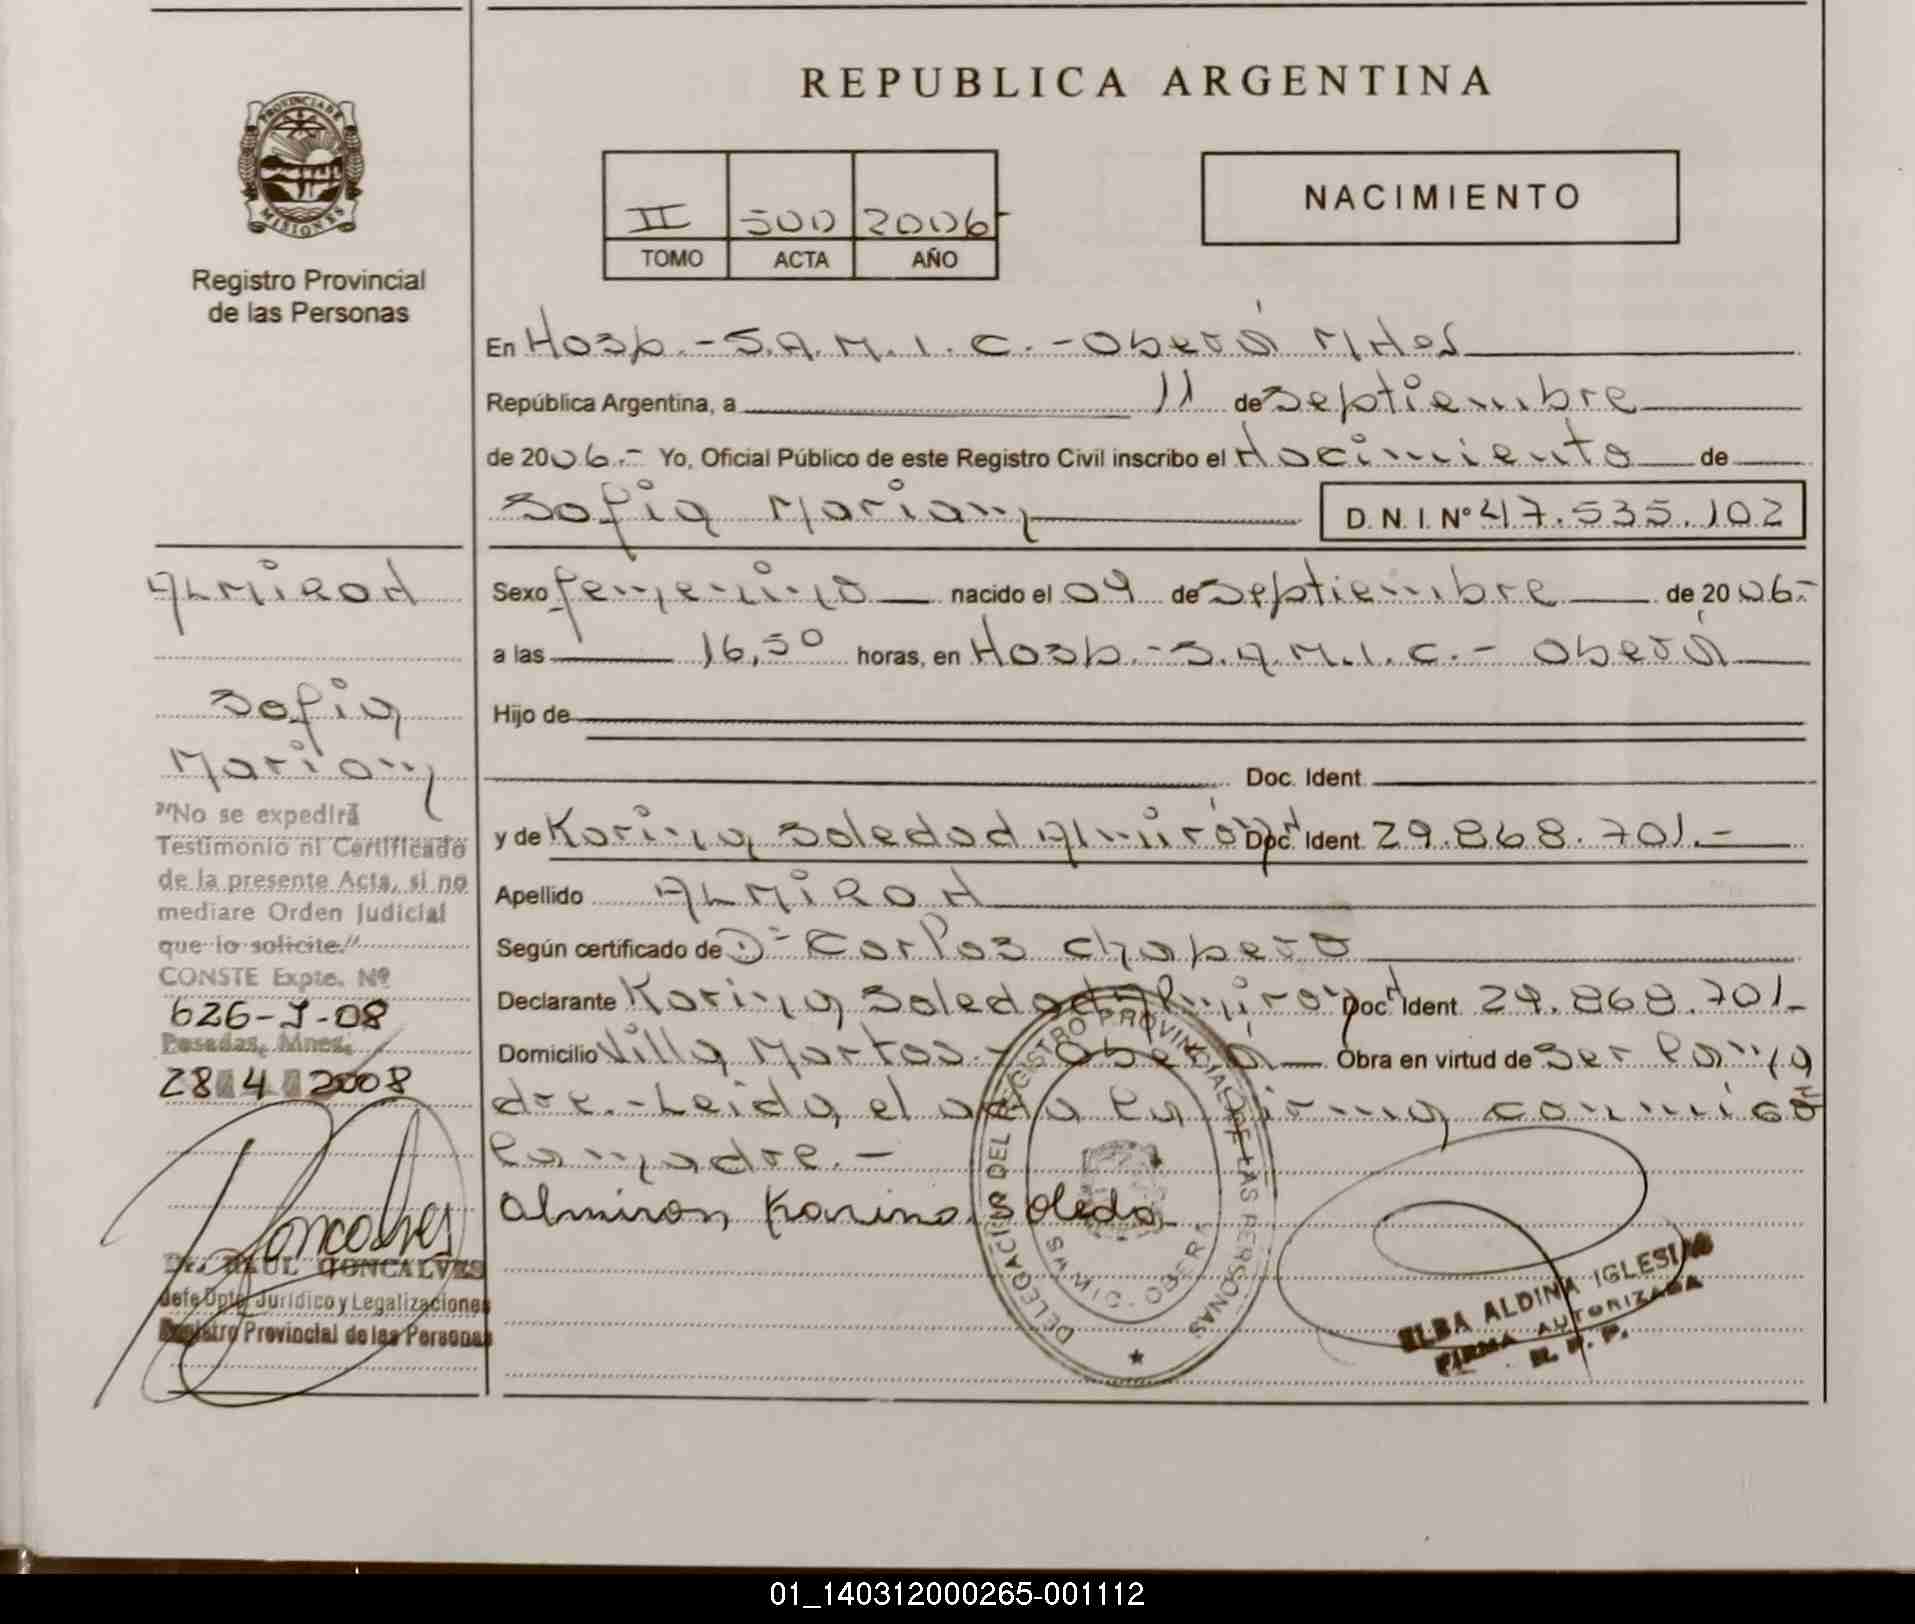 REPUBLICA ARGENTINA
PROVINCIA DE MISIONES
Registro Provincial
de las Personas
II 500 2006-
TOMO ACTA AÑO
NACIMIENTO
En Hosp.-S.A.M.I.C.-Oberá Mnes
República Argentina, a 11 de Septiembre
de 2006.- Yo, Oficial Público de este Registro Civil inscribo el Nacimiento de
Sofia Mariam D. N. I. Nº 47.535.102
Sexo femenino nacido el 09 de Septiembre de 2006.-
a las 16,50 horas, en Hosp.-S.A.M.I.C.- Oberá
Hijo de
Doc. Ident.
y de Karina Soledad Almirón Doc. Ident. 29.868.701.-
Apellido ALMIRON
Según certificado de Dr Carlos Chapero
Declarante Karina Soledad Almirón Doc. Ident. 29.868.701-
Domicilio Villa Martos.- Oberá Obra en virtud de ser la ma
dre.-Leida el acta la firma conmigo
la madre.-
Almiron Karina Soleda
ALMIRON
Sofia
Mariam
"No se expedirá
Testimonio ni Certificado
de la presente Acta, si no
mediare Orden Judicial
que lo solicite."
CONSTE Expte. Nº
626-J-08
Posadas, Mnes.
28 4 2008
Dr. RAUL GONCALVES
Jefe Dpto. Jurídico y Legalizaciones
Registro Provincial de las Personas
DELEGACIÓN DEL REGISTRO PROVINCIAL DE LAS PERSONAS
OBERÁ
ELBA ALDINA IGLESIAS
FIRMA AUTORIZADA
R. P. P.
01_140312000265-001112